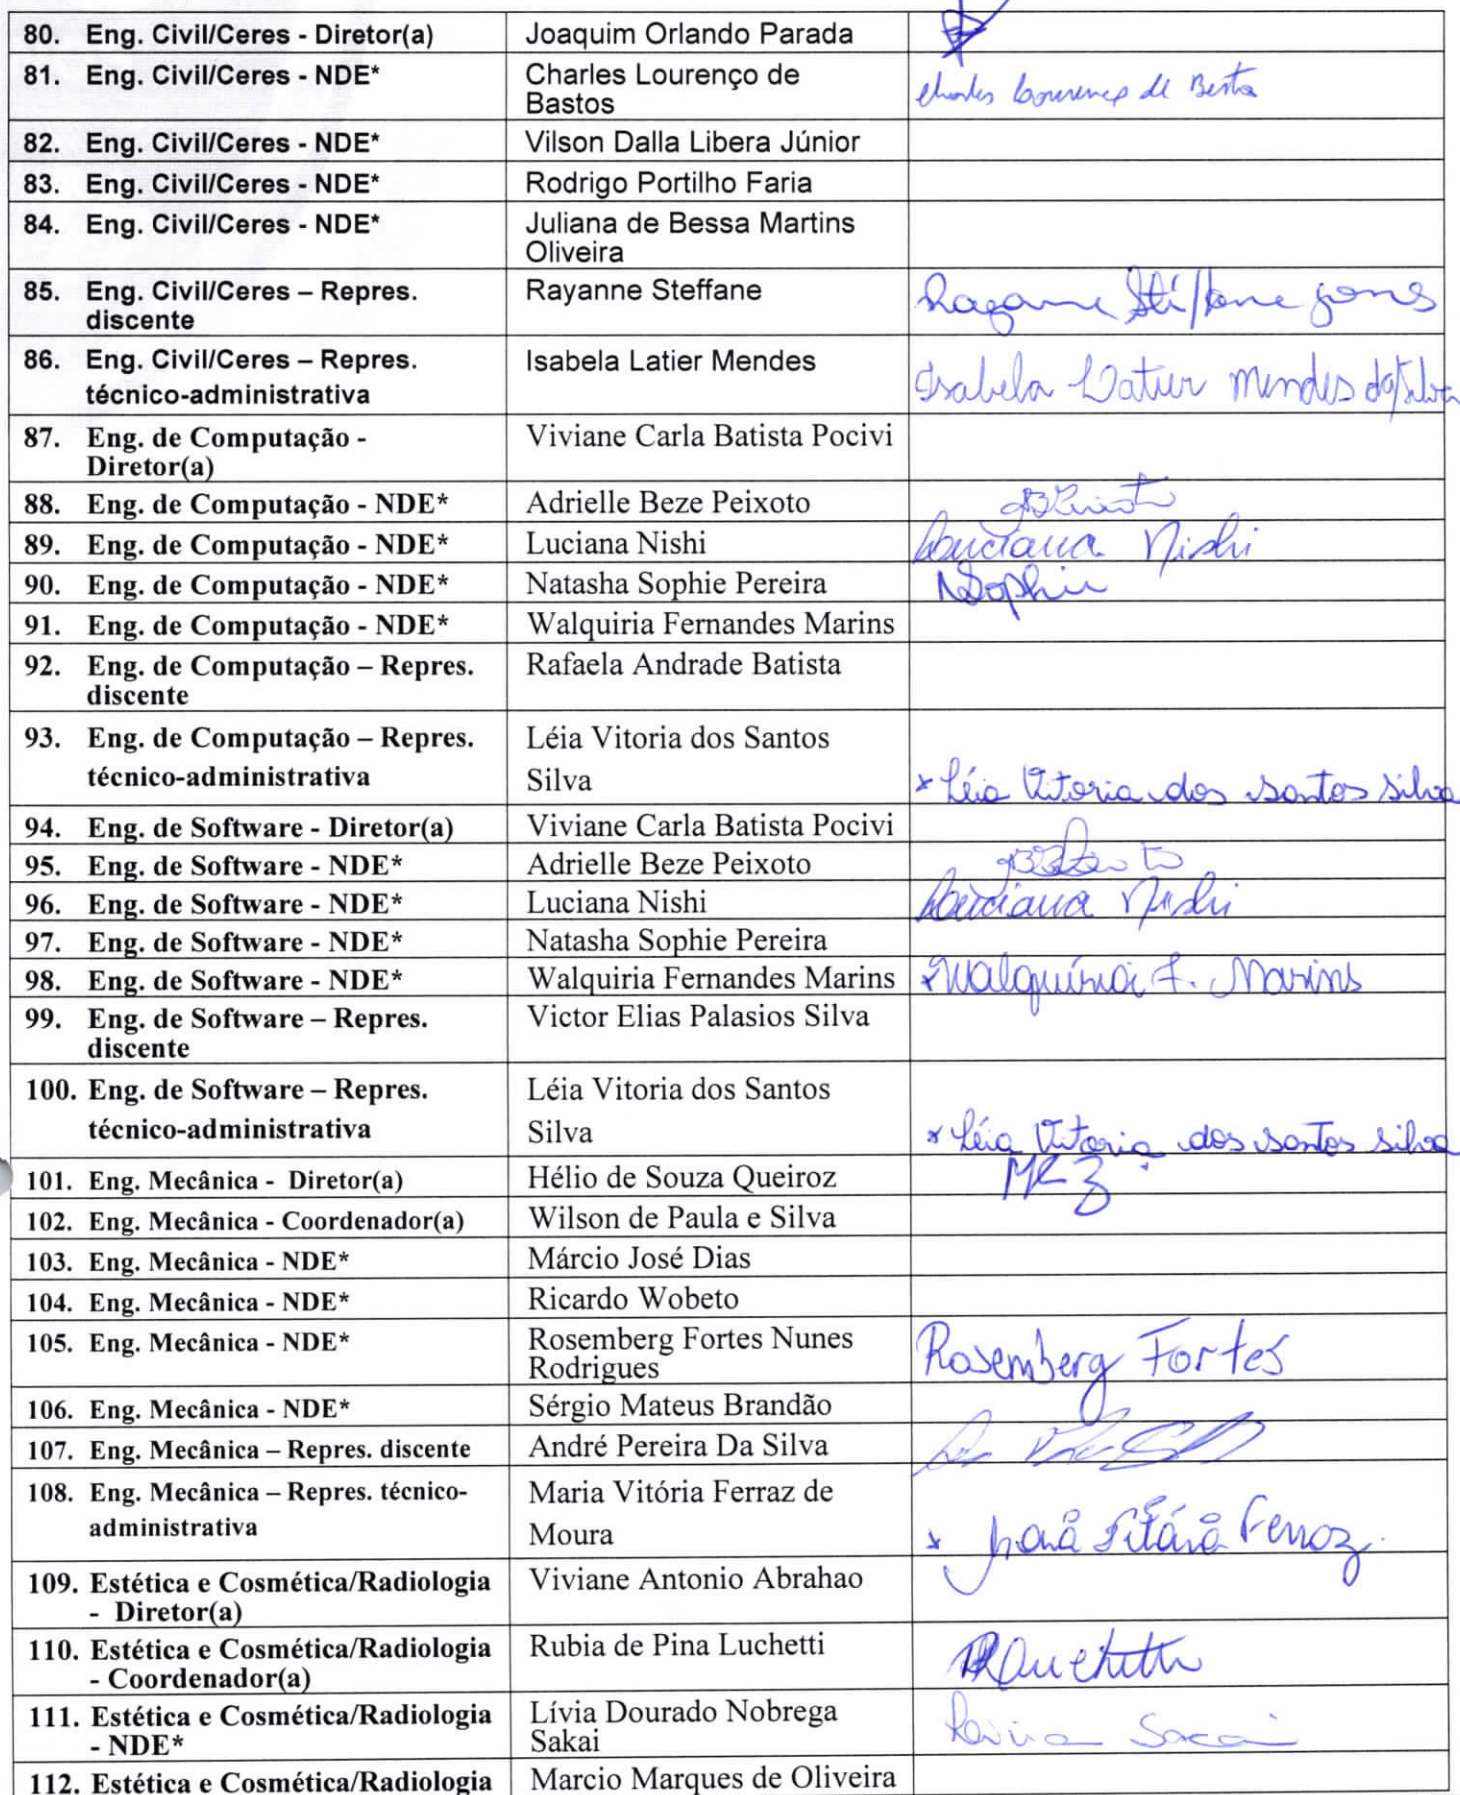 80. Eng. Civil/Ceres - Diretor(a) Joaquim Orlando Parada
81. Eng. Civil/Ceres - NDE* Charles Lourenço de
Bastos
82. Eng. Civil/Ceres - NDE* Vilson Dalla Libera Júnior
83. Eng. Civil/Ceres - NDE* Rodrigo Portilho Faria
84. Eng. Civil/Ceres - NDE* Juliana de Bessa Martins
Oliveira
85. Eng. Civil/Ceres – Repres. Rayanne Steffane
discente
86. Eng. Civil/Ceres – Repres. Isabela Latier Mendes Isabela Latier Mendes da Silva
técnico-administrativa
87. Eng. de Computação - Viviane Carla Batista Pocivi
Diretor(a)
88. Eng. de Computação - NDE* Adrielle Beze Peixoto
89. Eng. de Computação - NDE* Luciana Nishi Luciana Nishi
90. Eng. de Computação - NDE* Natasha Sophie Pereira NSophie
91. Eng. de Computação - NDE* Walquiria Fernandes Marins
92. Eng. de Computação – Repres. Rafaela Andrade Batista
discente
93. Eng. de Computação – Repres. Léia Vitoria dos Santos
técnico-administrativa Silva x Léia Vitoria dos santos silva
94. Eng. de Software - Diretor(a) Viviane Carla Batista Pocivi
95. Eng. de Software - NDE* Adrielle Beze Peixoto
96. Eng. de Software - NDE* Luciana Nishi Luciana Nishi
97. Eng. de Software - NDE* Natasha Sophie Pereira
98. Eng. de Software - NDE* Walquiria Fernandes Marins x Walquíria F. Marins
99. Eng. de Software – Repres. Victor Elias Palasios Silva
discente
100. Eng. de Software – Repres. Léia Vitoria dos Santos
técnico-administrativa Silva x Léia Vitoria dos santos silva
101. Eng. Mecânica - Diretor(a) Hélio de Souza Queiroz
102. Eng. Mecânica - Coordenador(a) Wilson de Paula e Silva
103. Eng. Mecânica - NDE* Márcio José Dias
104. Eng. Mecânica - NDE* Ricardo Wobeto
105. Eng. Mecânica - NDE* Rosemberg Fortes Nunes Rosemberg Fortes
Rodrigues
106. Eng. Mecânica - NDE* Sérgio Mateus Brandão
107. Eng. Mecânica – Repres. discente André Pereira Da Silva
108. Eng. Mecânica – Repres. técnico- Maria Vitória Ferraz de
administrativa Moura x Ferraz
109. Estética e Cosmética/Radiologia Viviane Antonio Abrahao
- Diretor(a)
110. Estética e Cosmética/Radiologia Rubia de Pina Luchetti
- Coordenador(a)
111. Estética e Cosmética/Radiologia Lívia Dourado Nobrega
- NDE* Sakai
112. Estética e Cosmética/Radiologia Marcio Marques de Oliveira